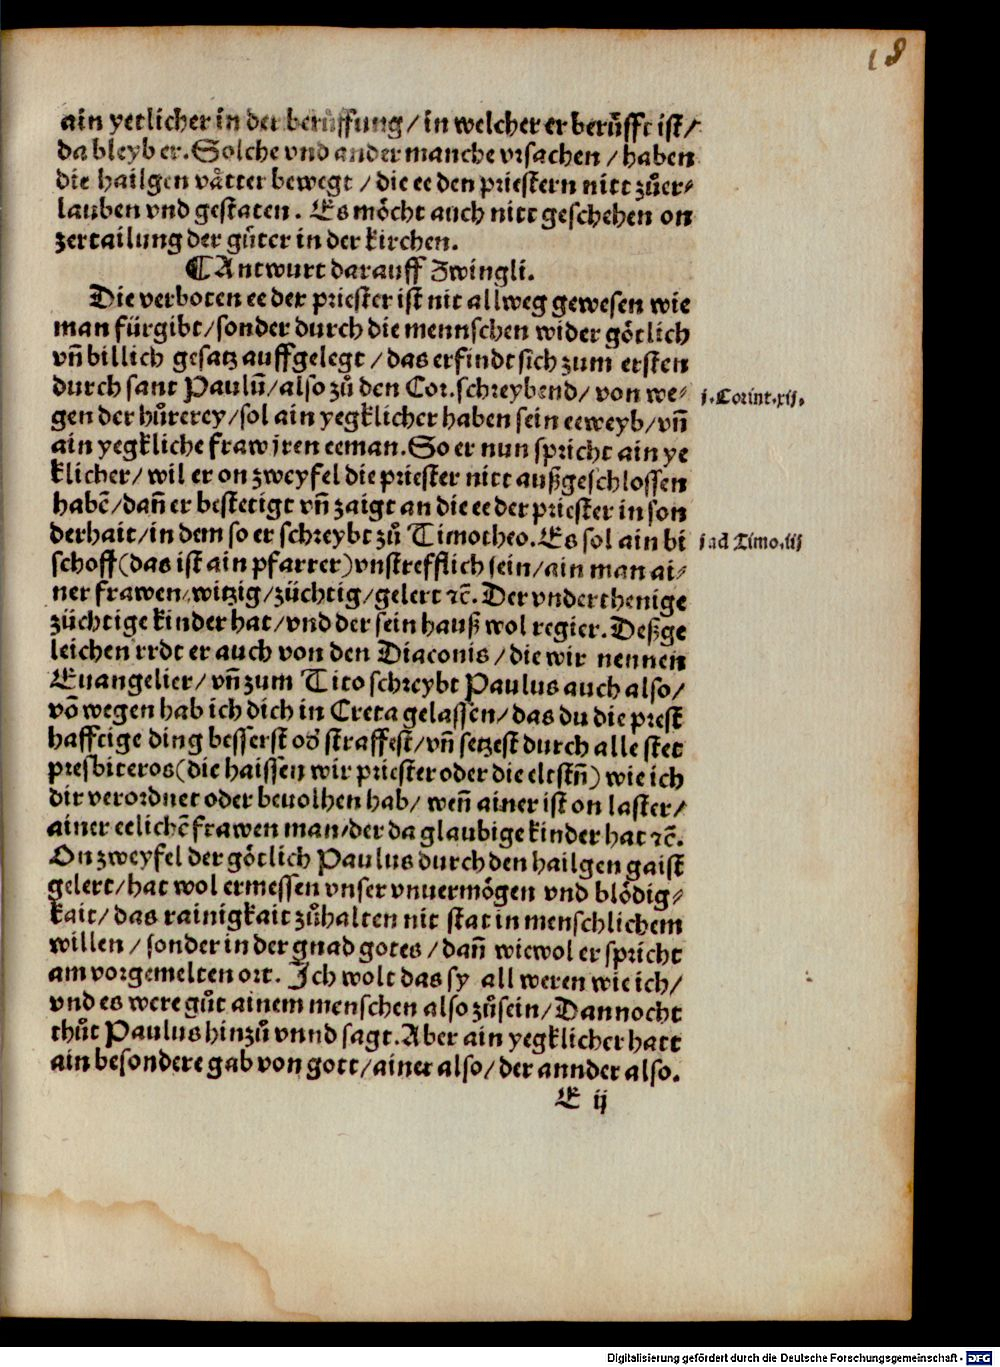 18
ain yetlicher in der berůffung / in welcher er berůfft ist /
da bleyb er. Solche vnd ander manche vrsachen / haben
die hailgen våtter bewegt / die ee den priestern nitt zůer⸗
lauben vnd gestaten. Es möcht auch nitt geschehen on
zertailung der gůter in der kirchen.
¶ Antwurt darauff Zwingli.
Die verboten ee der priester ist nit allweg gewesen wie
man fürgibt / sonder durch die mennschen wider götlich
vñ billich gesatz auffgelegt / das erfindt sich zum ersten
durch sant Paulũ / also zů den Cor. schreybend / von we⸗
gen der hůrerey / sol ain yegklicher haben sein eeweyb / vñ
ain yegkliche fraw jren eeman. So er nun spricht ain ye
klicher / wil er on zweyfel die priester nitt außgeschlossen
habẽ / dañ er bestetigt vñ zaigt an die ee der priester in son
derhait / in dem so er schreybt zů Timotheo. Es sol ain bi
schoff (das ist ain pfarrer) vnstrefflich sein / ain man ai⸗
ner frawen / witzig / züchtig / gelert ꝛc̃. Der vnderthenige
züchtige kinder hat / vnd der sein hauß wol regier. Deßge
leichen rrdt er auch von den Diaconis / die wir nennen
Euangelier / vñ zum Tito schreybt Paulus auch also /
võ wegen hab ich dich in Creta gelassen / das du die prest
hafftige ding besserst oď straffest / vñ setzest durch alle stet
presbiteros (die haissen wir priester oder die eltstñ) wie ich
dir verordnet oder beuolhen hab / weñ ainer ist on laster /
ainer eelichẽ frawen man / der da glaubige kinder hat ꝛc̃.
On zweyfel der götlich Paulus durch den hailgen gaist
gelert / hat wol ermessen vnser vnuermögen vnd blödig⸗
kait / das rainigkait zůhalten nit stat in menschlichem
willen / sonder in der gnad gotes / dañ wiewol er spricht
am vorgemelten ort. Ich wolt das sy all weren wie ich /
vnd es were gůt ainem menschen also zůsein / Dannocht
thůt Paulus hinzů vnnd sagt. Aber ain yegklicher hatt
ain besondere gab von gott / ainer also / der annder also.
E ij
j. Corint. xij.
j ad Timo. iij
Digitalisierung gefördert durch die Deutsche Forschungsgemeinschaft - DFG